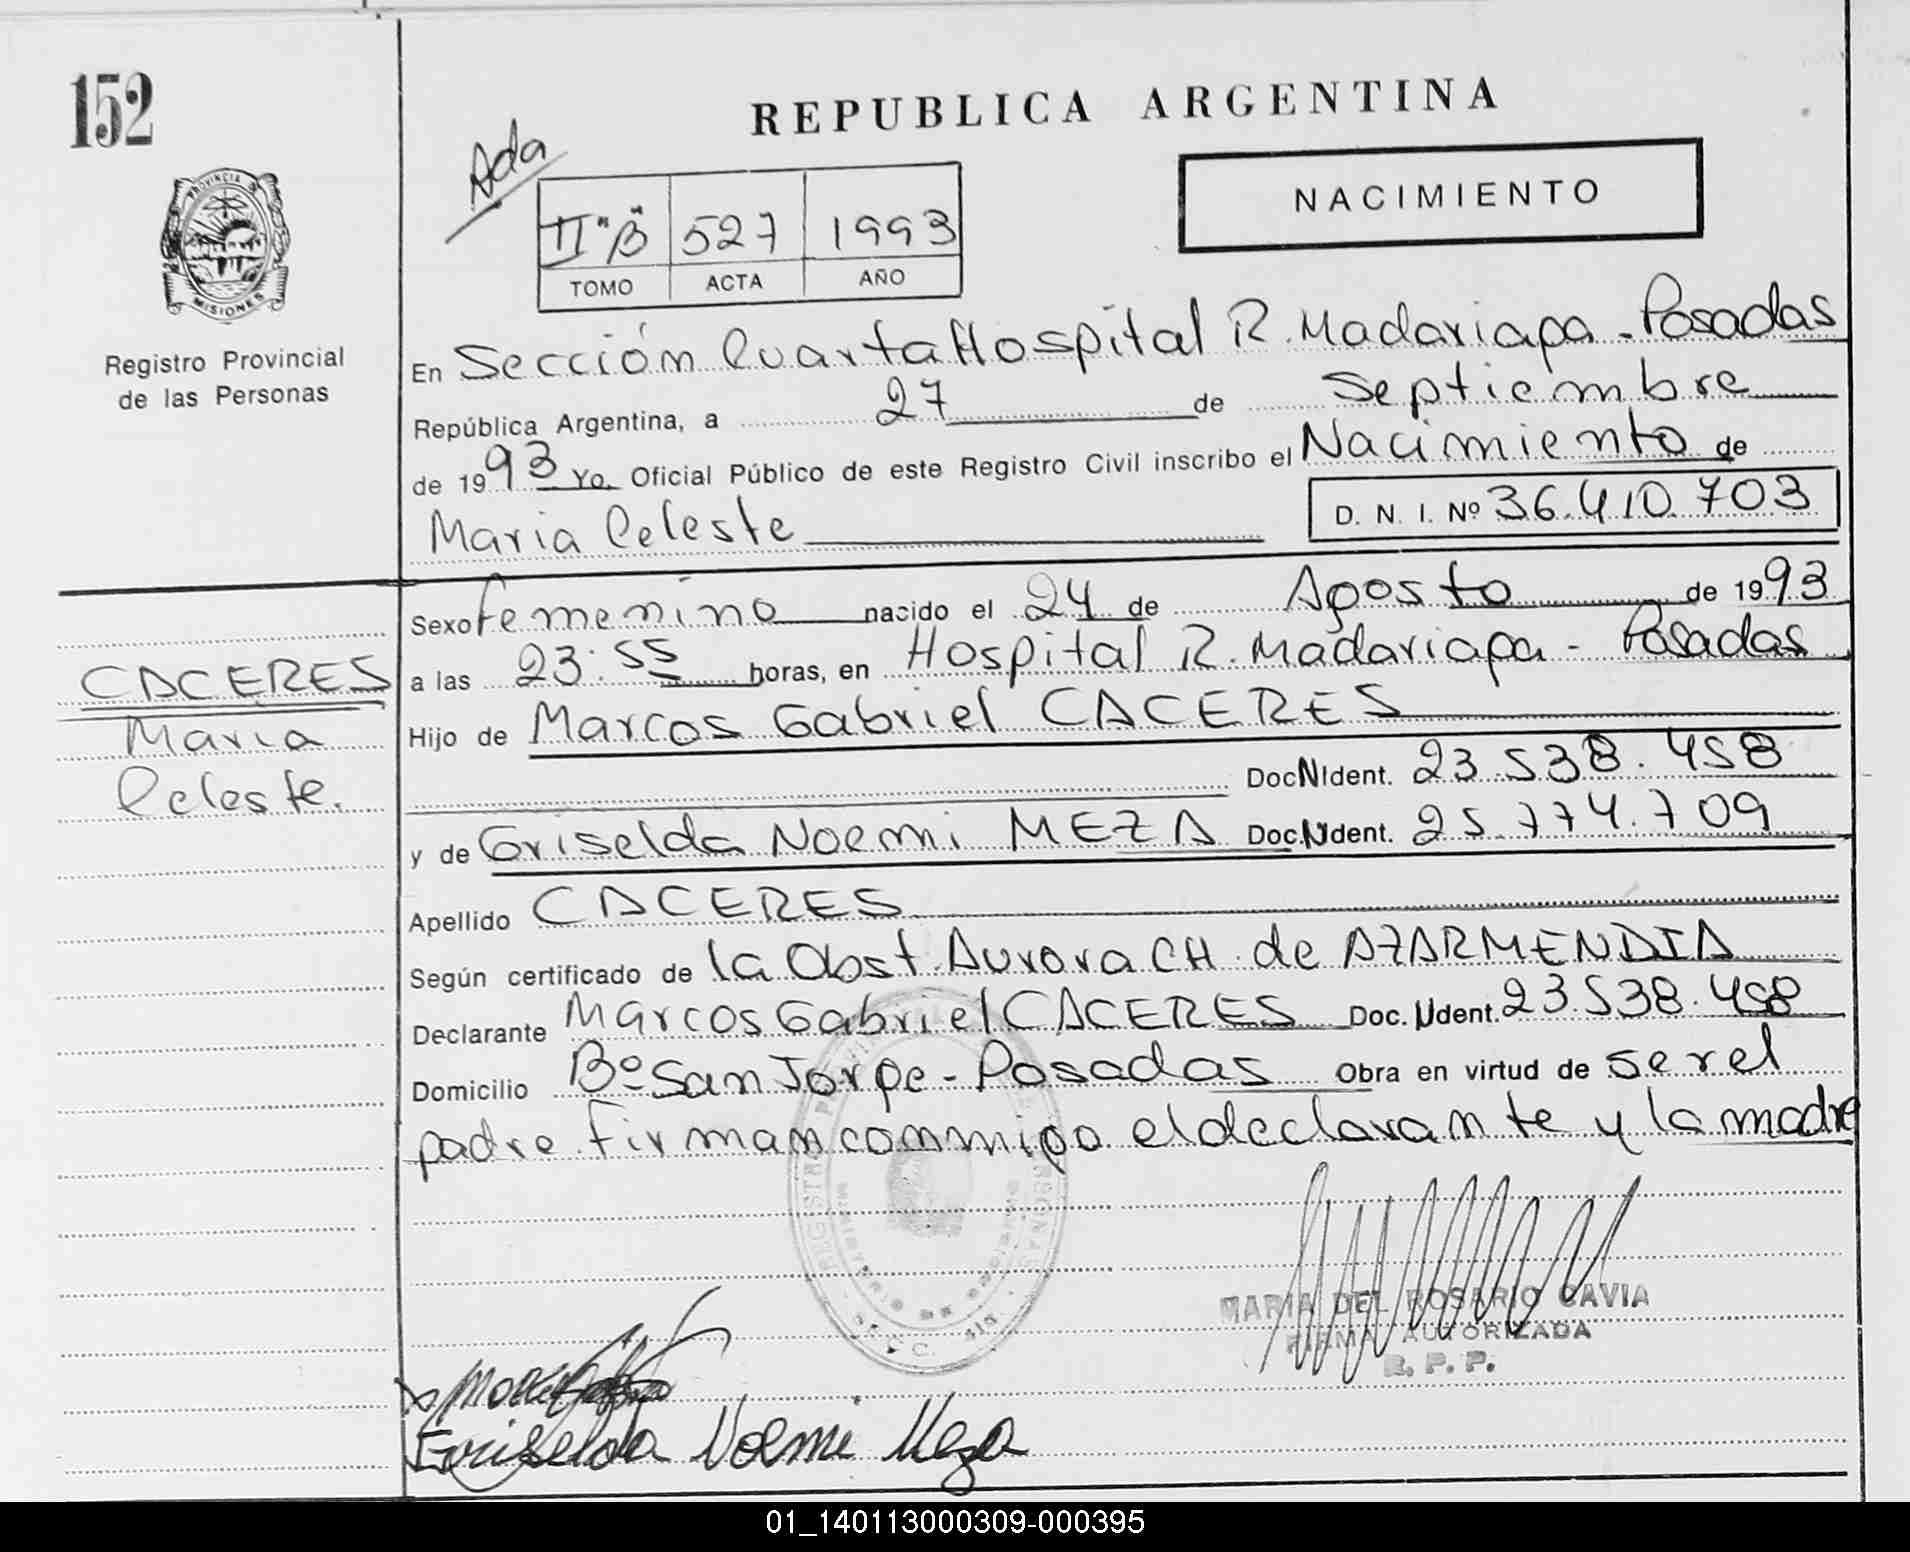 152
PROVINCIA DE
MISIONES
Registro Provincial
de las Personas
CACERES
Maria
Celeste.
REPUBLICA ARGENTINA
Ada
II "B" 527 1993
TOMO ACTA AÑO
NACIMIENTO
En Sección Cuarta Hospital R. Madariaga - Posadas
República Argentina, a 27 de Septiembre
de 1993 Yo, Oficial Público de este Registro Civil inscribo el Nacimiento de
Maria Celeste D. N. I. Nº 36.410.703
Sexo femenino nacido el 24 de Agosto de 1993
a las 23:55 horas, en Hospital R. Madariaga - Posadas
Hijo de Marcos Gabriel CACERES
Doc.N.Ident. 23.538.458
y de Griselda Noemi MEZA Doc.N.Ident. 25.774.709
Apellido CACERES
Según certificado de la Obst. Aurora CH. de AZARMENDIA
Declarante Marcos Gabriel CACERES Doc. N.Ident. 23.538.458
Domicilio Bº San Jorge - Posadas Obra en virtud de ser el
padre. Firman conmigo el declarante y la madre
MARIA DEL ROSARIO GAVIA
FIRMA AUTORIZADA
R. P. P.
Griselda Noemi Meza
01_140113000309-000395